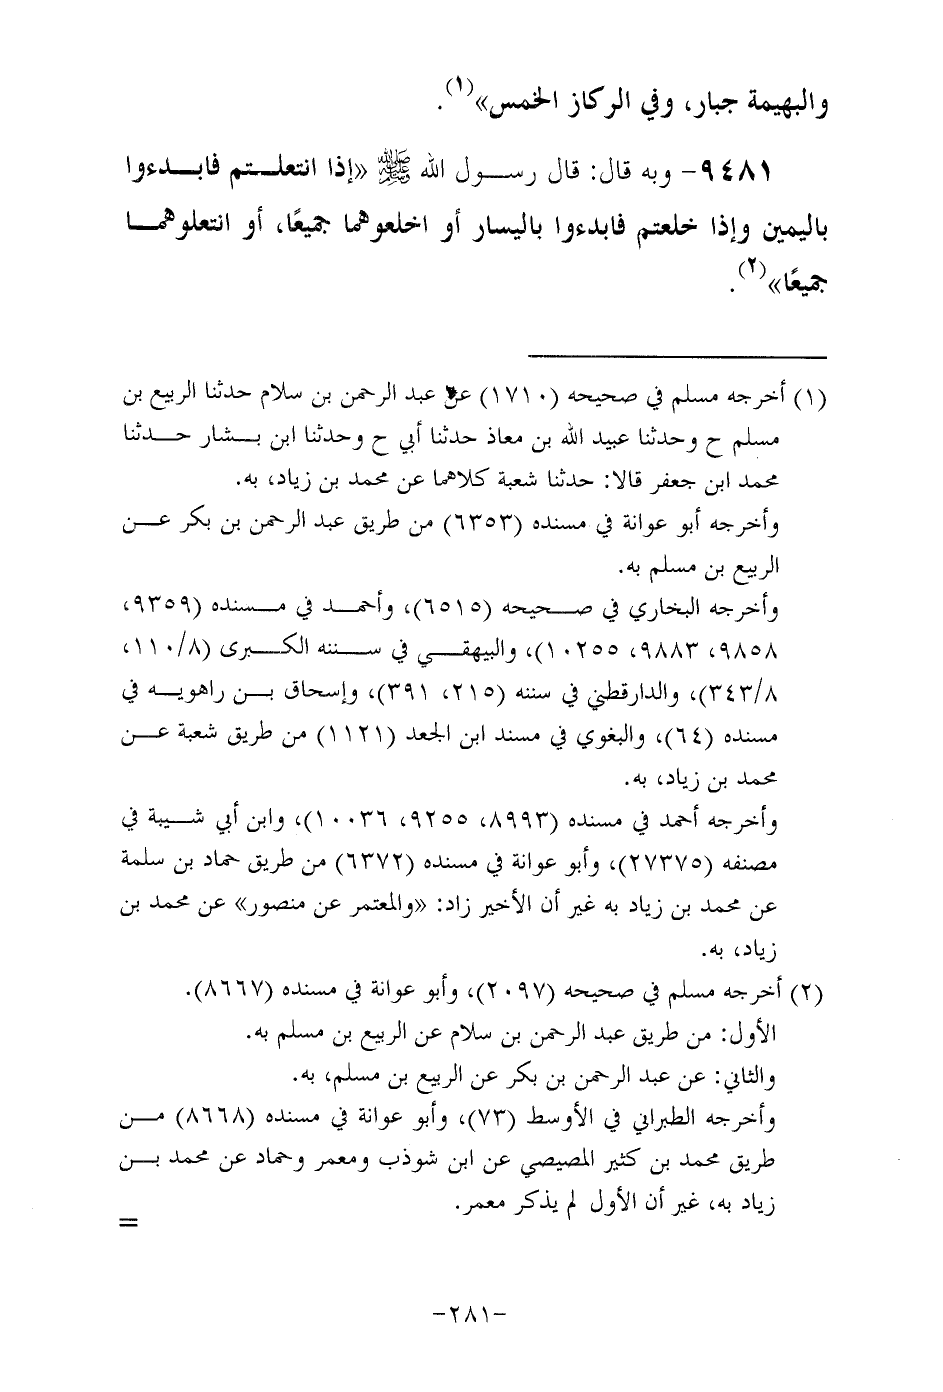 والبهيمة جبار، وفي الركاز الخمس»(١).
٩٤٨١- وبه قال: قال رسول الله ﷺ «إذا انتعلتم فابدءوا
باليمين وإذا خلعتم فابدءوا باليسار أو اخلعوهما جميعًا، أو انتعلوهما
جميعًا»(٢).
(١) أخرجه مسلم في صحيحه (١٧١٠) عن عبد الرحمن بن سلام حدثنا الربيع بن
مسلم ح وحدثنا عبيد الله بن معاذ حدثنا أبي ح وحدثنا ابن بشار حدثنا
محمد ابن جعفر قالا: حدثنا شعبة كلاهما عن محمد بن زياد، به.
وأخرجه أبو عوانة في مسنده (٦٣٥٣) من طريق عبد الرحمن بن بكر عن
الربيع بن مسلم به.
وأخرجه البخاري في صحيحه (٦٥١٥)، وأحمد في مسنده (٩٣٥٩،
٩٨٥٨، ٩٨٨٣، ١٠٢٥٥)، والبيهقي في سننه الكبرى (١١٠/٨،
٣٤٣/٨)، والدارقطني في سننه (٢١٥، ٣٩١)، وإسحاق بن راهويه في
مسنده (٦٤)، والبغوي في مسند ابن الجعد (١١٢١) من طريق شعبة عن
محمد بن زياد، به.
وأخرجه أحمد في مسنده (٨٩٩٣، ٩٢٥٥، ١٠٠٣٦)، وابن أبي شيبة في
مصنفه (٢٧٣٧٥)، وأبو عوانة في مسنده (٦٣٧٢) من طريق حماد بن سلمة
عن محمد بن زياد به غير أن الأخير زاد: «والمعتمر عن منصور» عن محمد بن
زياد، به.
(٢) أخرجه مسلم في صحيحه (٢٠٩٧)، وأبو عوانة في مسنده (٨٦٦٧).
الأول: من طريق عبد الرحمن بن سلام عن الربيع بن مسلم به.
والثاني: عن عبد الرحمن بن بكر عن الربيع بن مسلم، به.
وأخرجه الطبراني في الأوسط (٧٣)، وأبو عوانة في مسنده (٨٦٦٨) من
طريق محمد بن كثير المصيصي عن ابن شوذب ومعمر وحماد عن محمد بن
زياد به، غير أن الأول لم يذكر معمر.
=
-٢٨١-